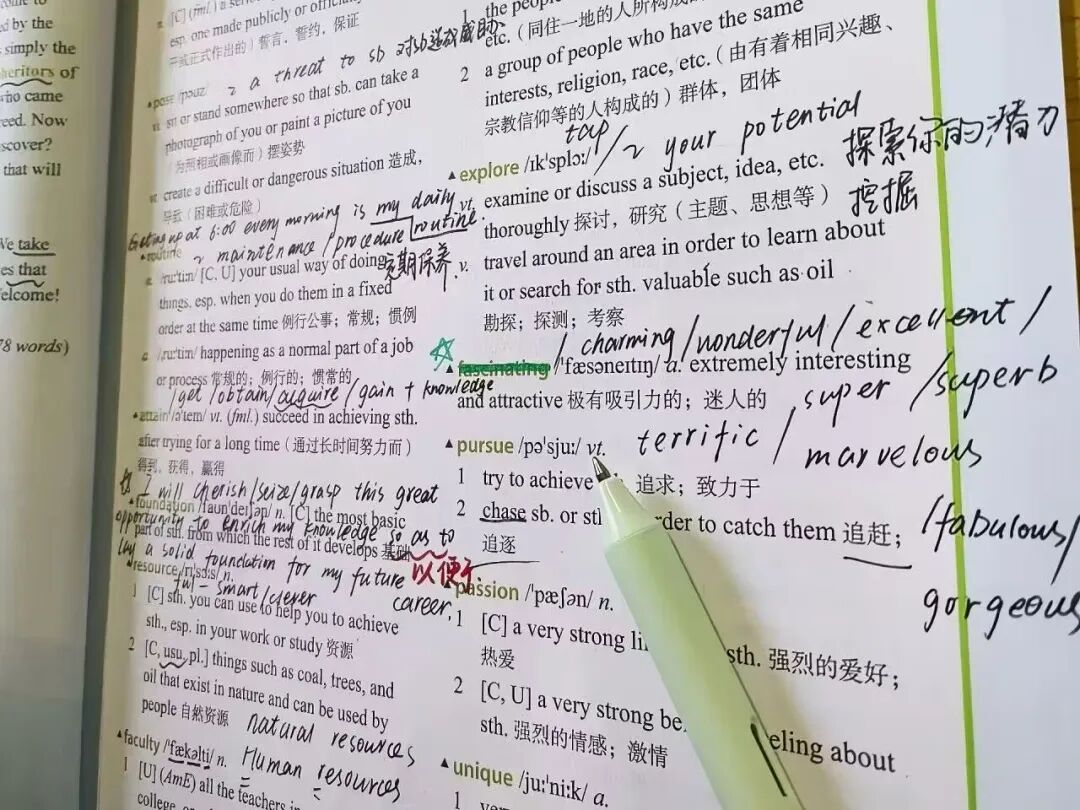 ed by the
simply the
heritors of
who came
reed. Now
scover?
that will
We take
es that
elcome!
78 words)
esp. one made publicly or officially
开或正式作出的）誓言，誓约，保证
~ a threat to sb 对sb造成威胁
▲pose /pəuz/
vi. sit or stand somewhere so that sb. can take a
photograph of you or paint a picture of you
（为照相或画像而）摆姿势
vt. create a difficult or dangerous situation 造成，
导致（困难或危险）
Getting up at 6:00 every morning is my daily routine.
~ maintenance / procedure
定期保养
▲routine
n. /ru:'ti:n/ [C, U] your usual way of doing
things, esp. when you do them in a fixed
order at the same time 例行公事；常规；惯例
a. /ru:'ti:n/ happening as a normal part of a job
or process 常规的；例行的；惯常的
/get /obtain/acquire /gain + knowledge
▲attain /ə'teɪn/ vt. (fml.) succeed in achieving sth.
after trying for a long time（通过长时间努力而）
得到，获得，赢得
☆ I will cherish/seize/grasp this great
opportunity to enrich my knowledge so as to
lay a solid foundation for my future career.
以便于
▲foundation /faun'deɪʃən/ n. [C] the most basic
part of sth. from which the rest of it develops 基础
▲resource /rɪ'sɔ:s/ n.
ful - smart/clever
1 [C] sth. you can use to help you to achieve
sth., esp. in your work or study 资源
2 [C, usu. pl.] things such as coal, trees, and
oil that exist in nature and can be used by
people 自然资源
natural resources
▲faculty /'fækəlti/ n.
Human resources
1 [U] (AmE) all the teachers in
college, or
1 the people
etc.（同住一地的人所构成的
2 a group of people who have the same
interests, religion, race, etc.（由有着相同兴趣、
宗教信仰等的人构成的）群体，团体
tap / ~ your potential
探索你的潜力
挖掘
▲explore /ɪk'splɔ:/
vt. examine or discuss a subject, idea, etc.
thoroughly 探讨，研究（主题、思想等）
v. travel around an area in order to learn about
it or search for sth. valuable such as oil
勘探；探测；考察
/ charming/wonderful/excellent/
☆
▲fascinating /'fæsəneɪtɪŋ/ a. extremely interesting
and attractive 极有吸引力的；迷人的
super /superb
terrific / marvelous
/fabulous/
gorgeous
▲pursue /pə'sju:/ vt.
1 try to achieve 追求；致力于
2 chase sb. or sth order to catch them 追赶；
追逐
▲passion /'pæʃən/ n.
1 [C] a very strong li sth. 强烈的爱好；
热爱
2 [C, U] a very strong be eling about
sth. 强烈的情感；激情
▲unique /ju:'ni:k/ a.
1